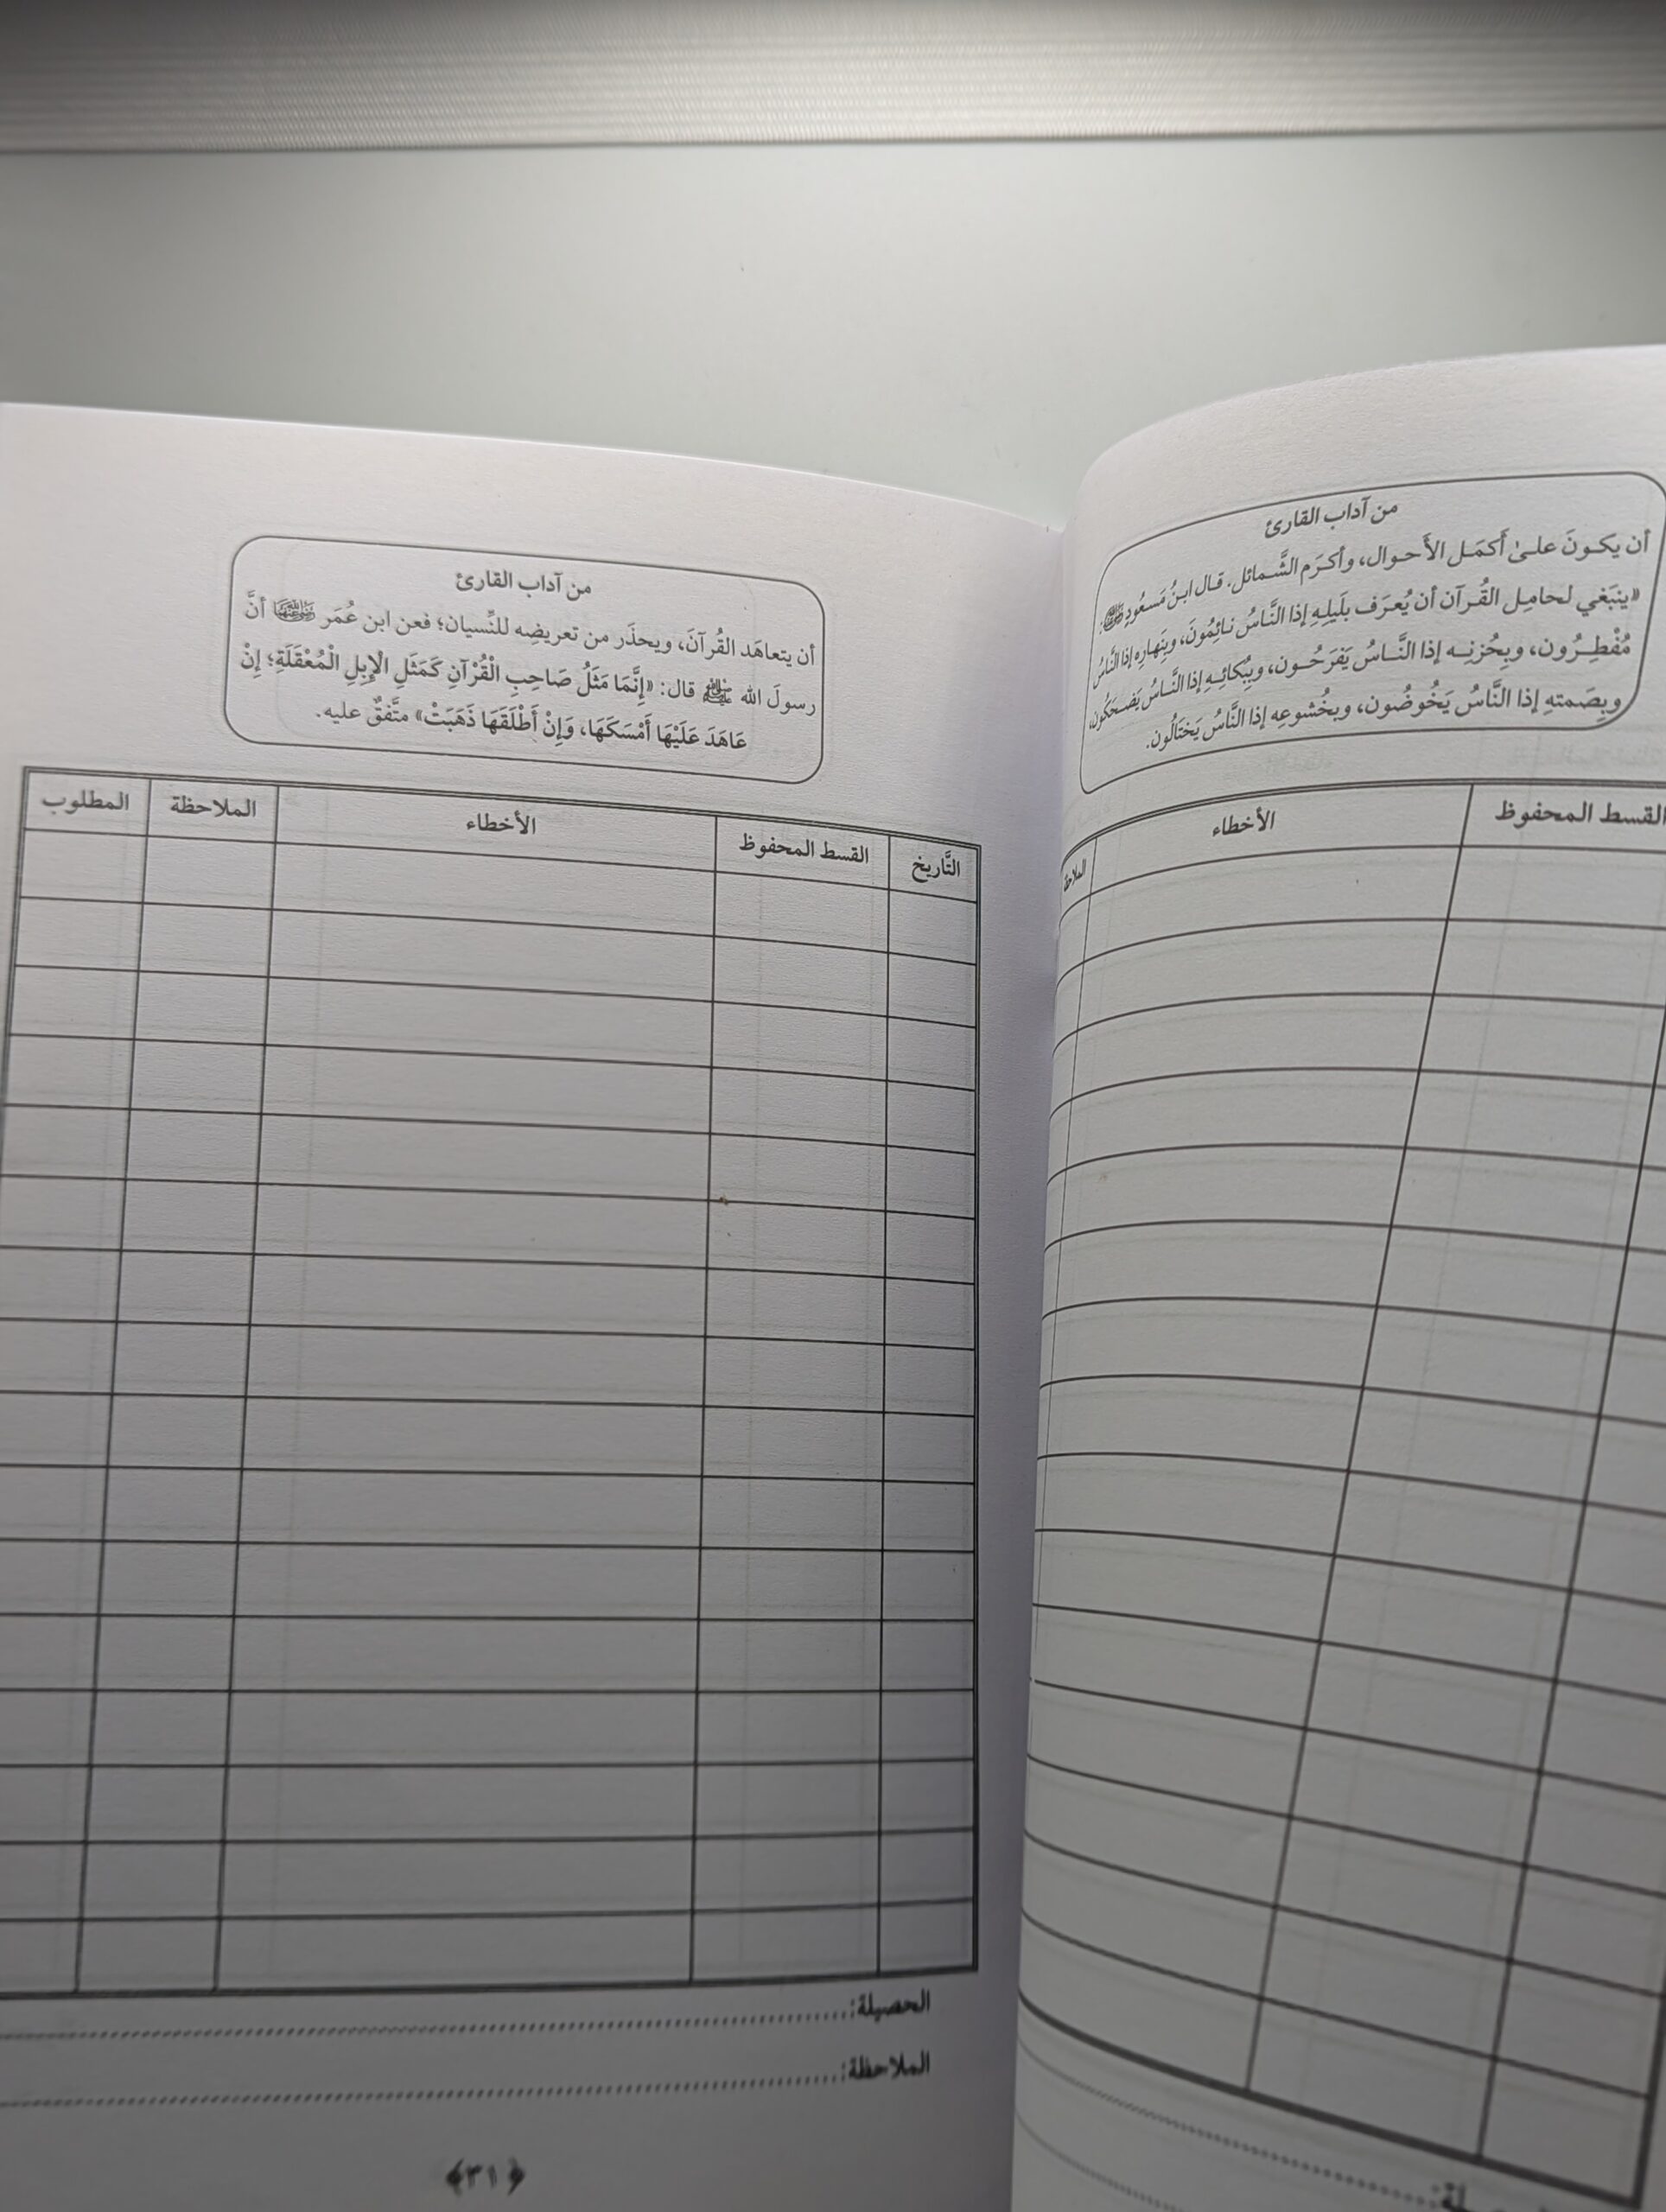 من آداب القارئ
أن يكونَ علىٰ أَكمَل الأَحوال، وأكرَم الشَّمائل. قال ابنُ مَسعُودٍ ﵁:
«ينبَغي لحامِل القُرآن أن يُعرَف بلَيلِهِ إذا النَّاسُ نائِمُونَ، وبِنَهارِه إذا النَّاسُ
مُفْطِرُون، وبِحُزنِه إذا النَّاسُ يَفرَحُون، وببُكائِهِ إذا النَّاسُ يَضحَكُون،
وبِصَمتهِ إذا النَّاسُ يَخُوضُون، وبخُشوعِه إذا النَّاسُ يَختَالُون.
القسط المحفوظ
الأخطاء
الملاحظة
من آداب القارئ
أن يتعاهَد القُرآنَ، ويحذَر من تعريضِه للنِّسيان؛ فعن ابن عُمَر ﵄ أنَّ
رسولَ الله ﷺ قال: «إِنَّمَا مَثَلُ صَاحِبِ الْقُرْآنِ كَمَثَلِ الْإِبِلِ الْمُعْقَلَةِ؛ إِنْ
عَاهَدَ عَلَيْهَا أَمْسَكَهَا، وَإِنْ أَطْلَقَهَا ذَهَبَتْ» متَّفقٌ عليه.
التَّاريخ
القسط المحفوظ
الأخطاء
الملاحظة
المطلوب
الحصيلة:
الملاحظة:
﴿٣١﴾